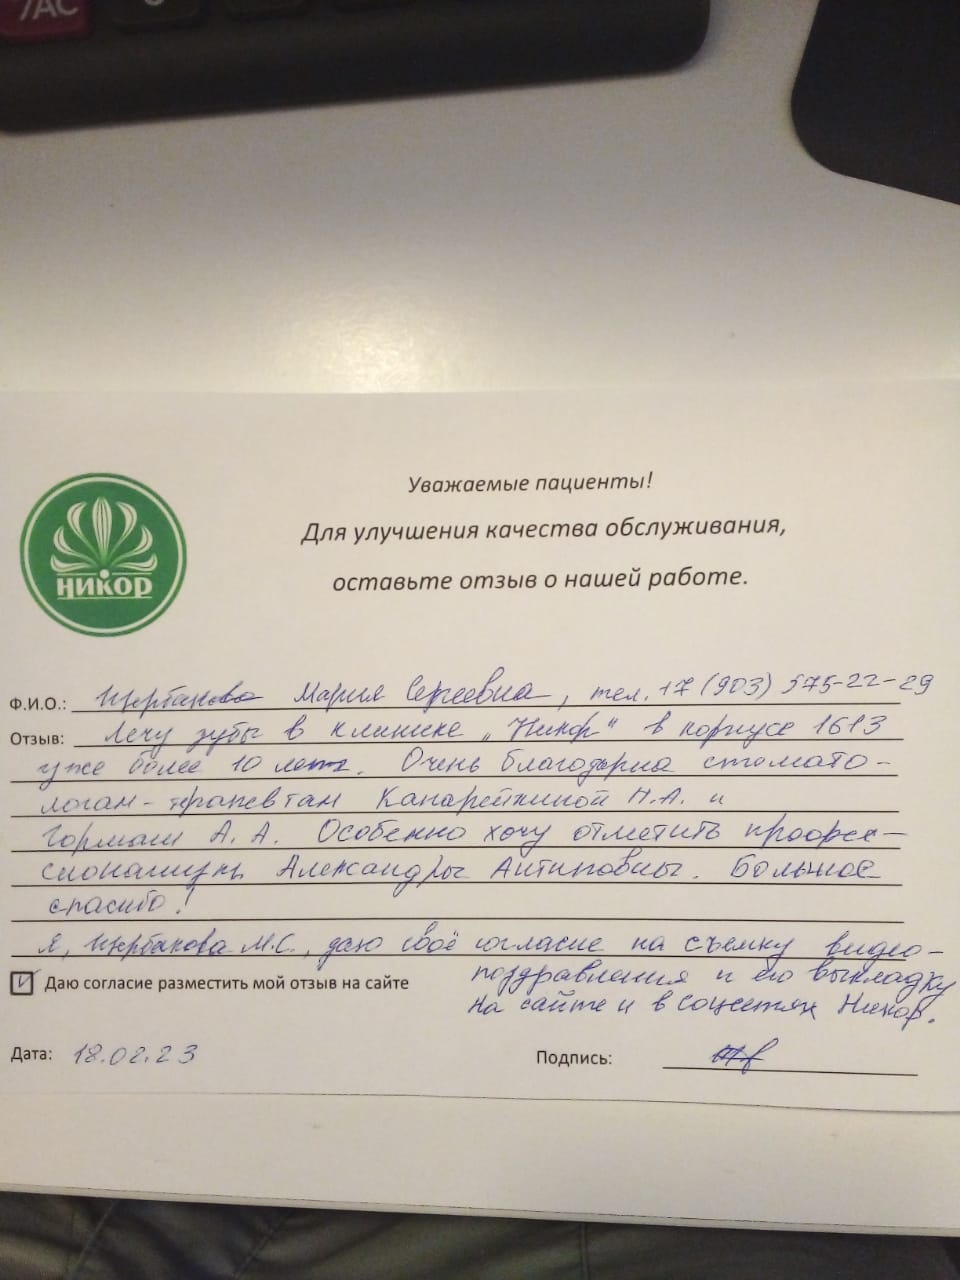 /AC
НИКОР
Уважаемые пациенты!
Для улучшения качества обслуживания,
оставьте отзыв о нашей работе.
Ф.И.О.: Щербакова Мария Сергеевна, тел. +7 (903) 575-22-29
Отзыв: Лечу зубы в клинике „Никор" в корпусе 1613
уже более 10 лет. Очень благодарна стомато-
логам-терапевтам Канарейкиной Н.А. и
А. А. Особенно хочу отметить профес-
сионализм Александры Антиповны. Большое
спасибо!
Я, Щербакова М.С., даю своё согласие на съемку видео-
поздравления и его выкладку
на сайте и в соцсетях Никор.
Даю согласие разместить мой отзыв на сайте
Дата: 18.02.23
Подпись: